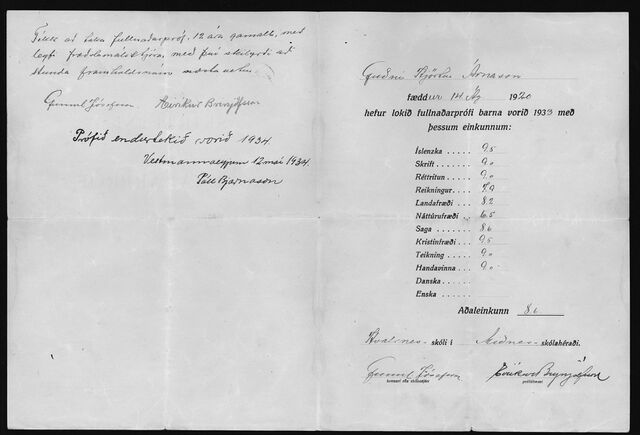 Fékk að taka fullnaðarpróf, 12 ára gamall, með
leyfi fræðslumálastjóra, með því skilyrði að
stunda framhaldsnám næsta vetur.
Gunnl Jósefsson Eiríkur Brynjólfsson
Prófið endurtekið vorið 1934.
Vestmannaeyjum 12 maí 1934.
Páll Bjarnason
Guðni Hjörtur Árnason
fæddur 14 1920
hefur lokið fullnaðarprófi barna vorið 1933 með
þessum einkunnum:
Íslenzka . . . . . 9.5
Skrift . . . . . . 9.0
Réttritun . . . . 9.0
Reikningur . . . . 7.9
Landafræði . . . . 8.2
Náttúrufræði . . 6.5
Saga . . . . . . . 8.6
Kristinfræði . . . . 9.5
Teikning . . . . . 9.0
Handavinna . . . . 9.0
Danska . . . . .
Enska . . . . . .
Aðaleinkunn 8.6
Hvalsnes- skóli í Miðnes- skólahéraði.
Gunnl Jósefsson Eiríkur Brynjólfsson
kennari eða skólastjóri prófdómari